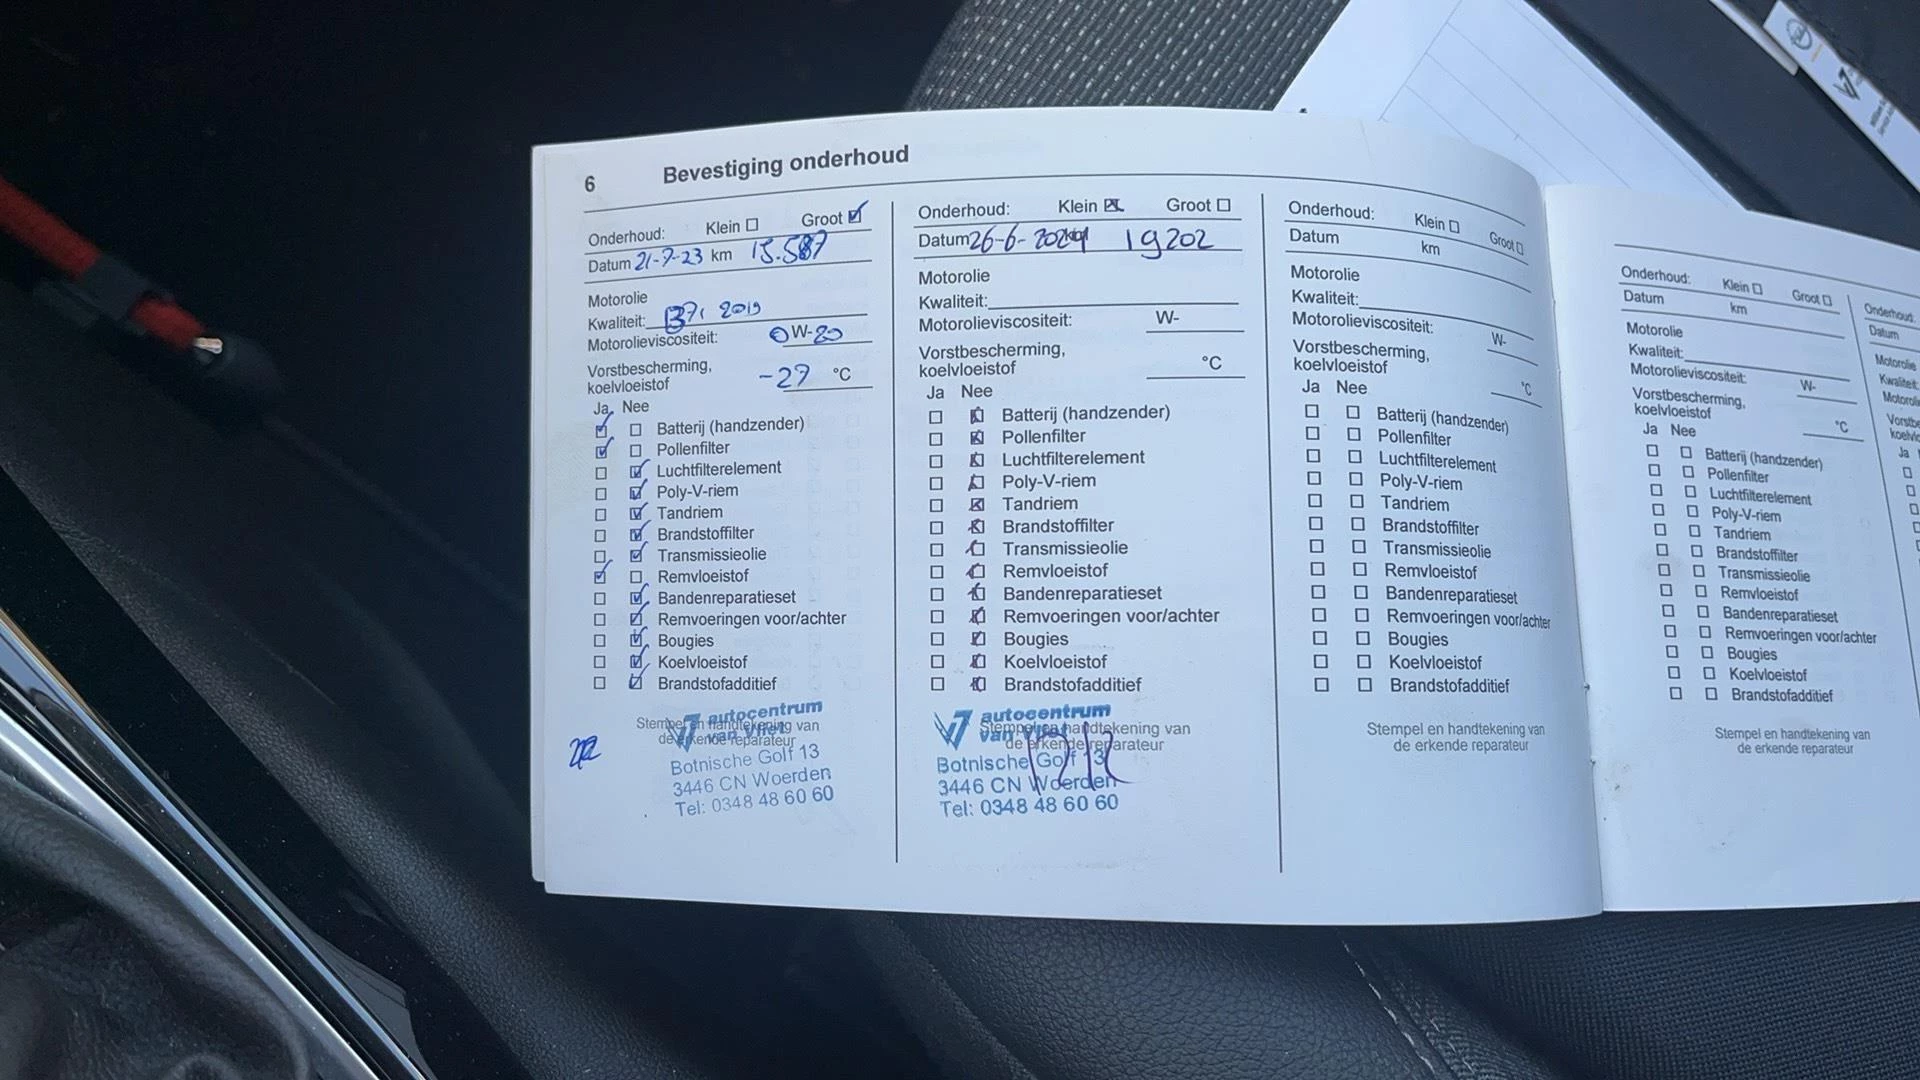 6 Bevestiging onderhoud
Onderhoud: Klein Groot
Datum 21-7-23 km 15.587
Motorolie
Kwaliteit: 2019
Motorolieviscositeit: 0W-20
Vorstbescherming,
koelvloeistof -27 °C
Ja Nee
Batterij (handzender)
Pollenfilter
Luchtfilterelement
Poly-V-riem
Tandriem
Brandstoffilter
Transmissieolie
Remvloeistof
Bandenreparatieset
Remvoeringen voor/achter
Bougies
Koelvloeistof
Brandstofadditief
Stempel en handtekening van
de erkende reparateur
autocentrum
van Vliet
Botnische Golf 13
3446 CN Woerden
Tel: 0348 48 60 60
Onderhoud: Klein Groot
Datum 26-6-2024 19202
Motorolie
Kwaliteit:
Motorolieviscositeit: W-
Vorstbescherming,
koelvloeistof °C
Ja Nee
Batterij (handzender)
Pollenfilter
Luchtfilterelement
Poly-V-riem
Tandriem
Brandstoffilter
Transmissieolie
Remvloeistof
Bandenreparatieset
Remvoeringen voor/achter
Bougies
Koelvloeistof
Brandstofadditief
Stempel en handtekening van
de erkende reparateur
autocentrum
van Vliet
Botnische Golf 13
3446 CN Woerden
Tel: 0348 48 60 60
Onderhoud: Klein Groot
Datum km
Motorolie
Kwaliteit:
Motorolieviscositeit: W-
Vorstbescherming,
koelvloeistof °C
Ja Nee
Batterij (handzender)
Pollenfilter
Luchtfilterelement
Poly-V-riem
Tandriem
Brandstoffilter
Transmissieolie
Remvloeistof
Bandenreparatieset
Remvoeringen voor/achter
Bougies
Koelvloeistof
Brandstofadditief
Stempel en handtekening van
de erkende reparateur
Onderhoud: Klein Groot
Datum km
Motorolie
Kwaliteit:
Motorolieviscositeit: W-
Vorstbescherming,
koelvloeistof °C
Ja Nee
Batterij (handzender)
Pollenfilter
Luchtfilterelement
Poly-V-riem
Tandriem
Brandstoffilter
Transmissieolie
Remvloeistof
Bandenreparatieset
Remvoeringen voor/achter
Bougies
Koelvloeistof
Brandstofadditief
Stempel en handtekening van
de erkende reparateur
Onderhoud:
Datum
Motorolie
Ja